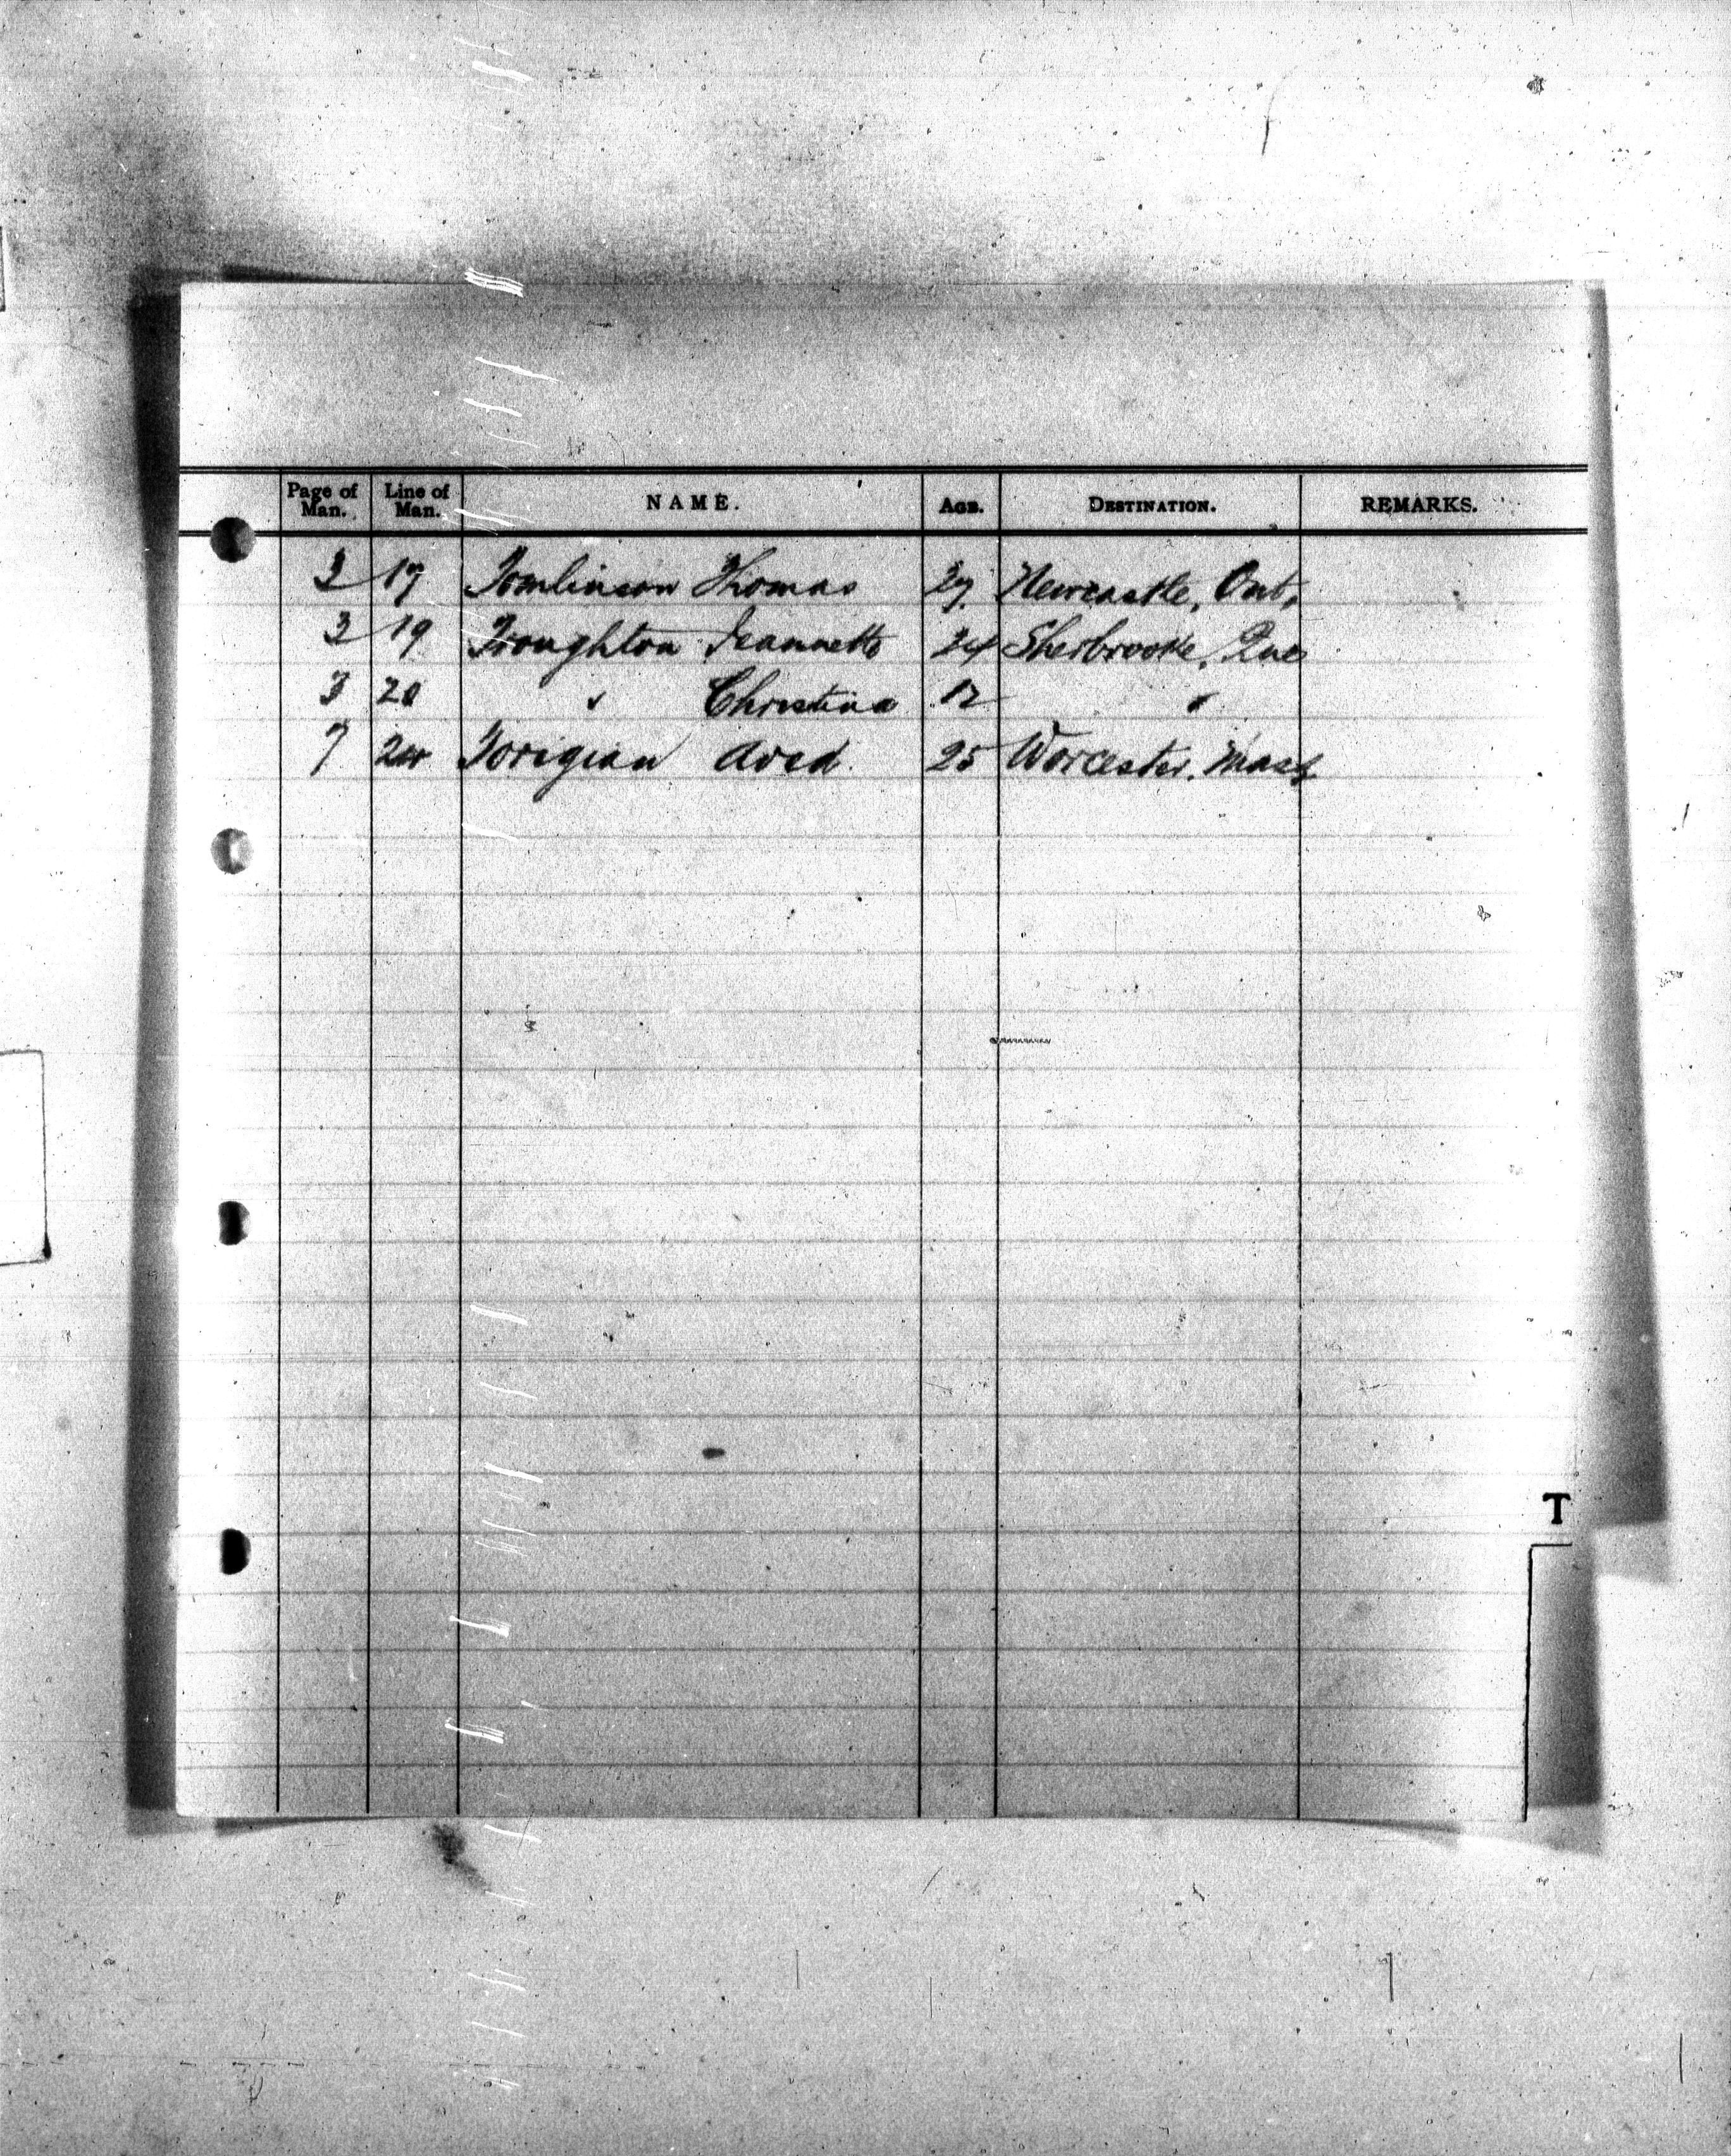 Page of Man. Line of Man. NAME. AGE. DESTINATION. REMARKS.
3 17 Tomlinson Thomas 27. Newcastle, Ont.
3 19 Troughton Jeannette 24 Sherbrooke, Que
3 20 " Christina 12 "
7 24 Torigian Aved. 25 Worcester. Mass
T